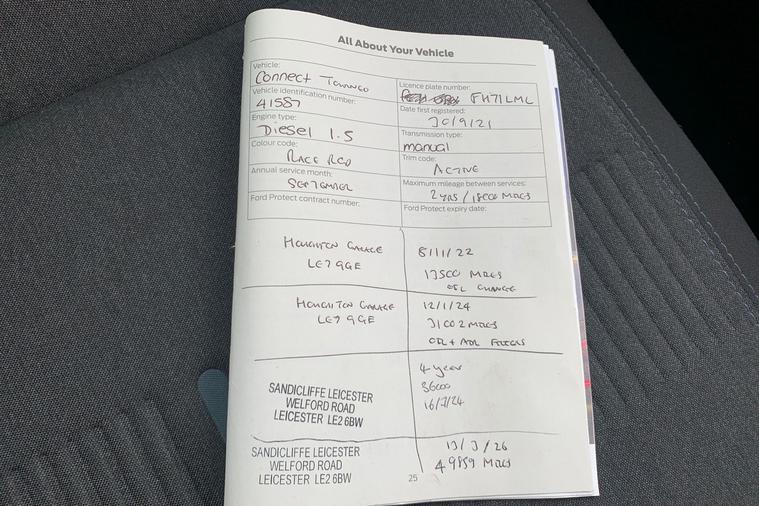 All About Your Vehicle
Vehicle:
Connect Tourneo
Licence plate number:
FH71LML
Vehicle identification number:
41587
Date first registered:
30/9/21
Engine type:
Diesel 1.5
Transmission type:
manual
Colour code:
RACE RED
Trim code:
ACTIVE
Annual service month:
SEPTEMBER
Maximum mileage between services:
2 YRS / 18000 MILES
Ford Protect contract number:
Ford Protect expiry date:
HOUGHTON GARAGE
LE7 9GE
8/11/22
17500 MILES
OIL CHANGE
HOUGHTON GARAGE
LE7 9GE
12/1/24
31002 MILES
OIL +
4 year
36000
16/7/24
SANDICLIFFE LEICESTER
WELFORD ROAD
LEICESTER LE2 6BW
13/3/26
49859 MILES
SANDICLIFFE LEICESTER
WELFORD ROAD
LEICESTER LE2 6BW
25